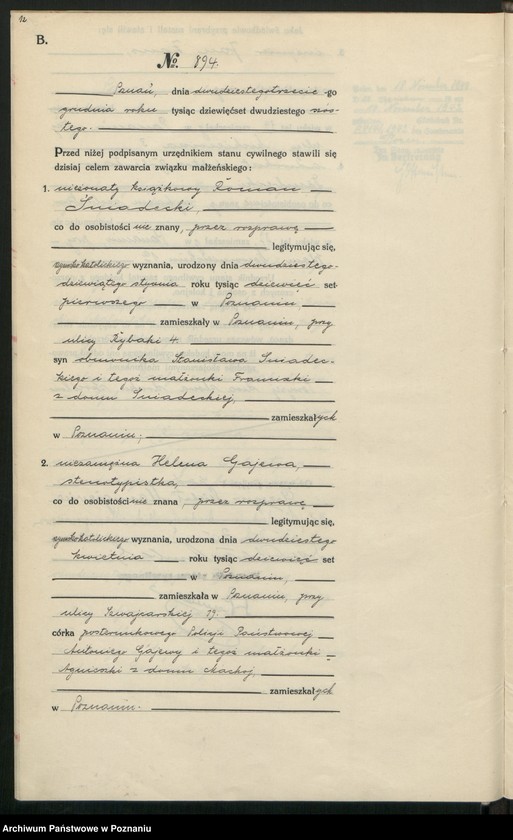 12
B.
No. 894.
Poznań, dnia dwudziestegotrzeciego
grudnia roku tysiąc dziewięćset dwudziestego szós-
tego.
Przed niżej podpisanym urzędnikiem stanu cywilnego stawili się
dzisiaj celem zawarcia związku małżeńskiego:
1. nieżonaty książkowy Roman
Śniadecki,
co do osobistości nie znany, przez rozprawę
legitymując się,
rzymskokatolickiego wyznania, urodzony dnia dwudziestego-
dziewiątego stycznia roku tysiąc dziewięć set
pierwszego w Poznaniu,
zamieszkały w Poznaniu, przy
ulicy Rybaki 4.
syn obuwnika Stanisława Śniadec-
kiego i tegoż małżonki Franciszki
z domu Śniadeckiej,
zamieszkałych
w Poznaniu;
2. niezamężna Helena Gajewa,
stenotypistka,
co do osobistości nie znana, przez rozprawę
legitymując się,
rzymskokatolickiego wyznania, urodzona dnia dwudziestego
kwietnia roku tysiąc dziewięć set
w Poznaniu,
zamieszkała w Poznaniu, przy
ulicy Szwajcarskiej 19.
córka posterunkowego Policji Państwowej
Antoniego Gajewy i tegoż małżonki
Agnieszki z domu
zamieszkałych
w Poznaniu.
Archiwum Państwowe w Poznaniu